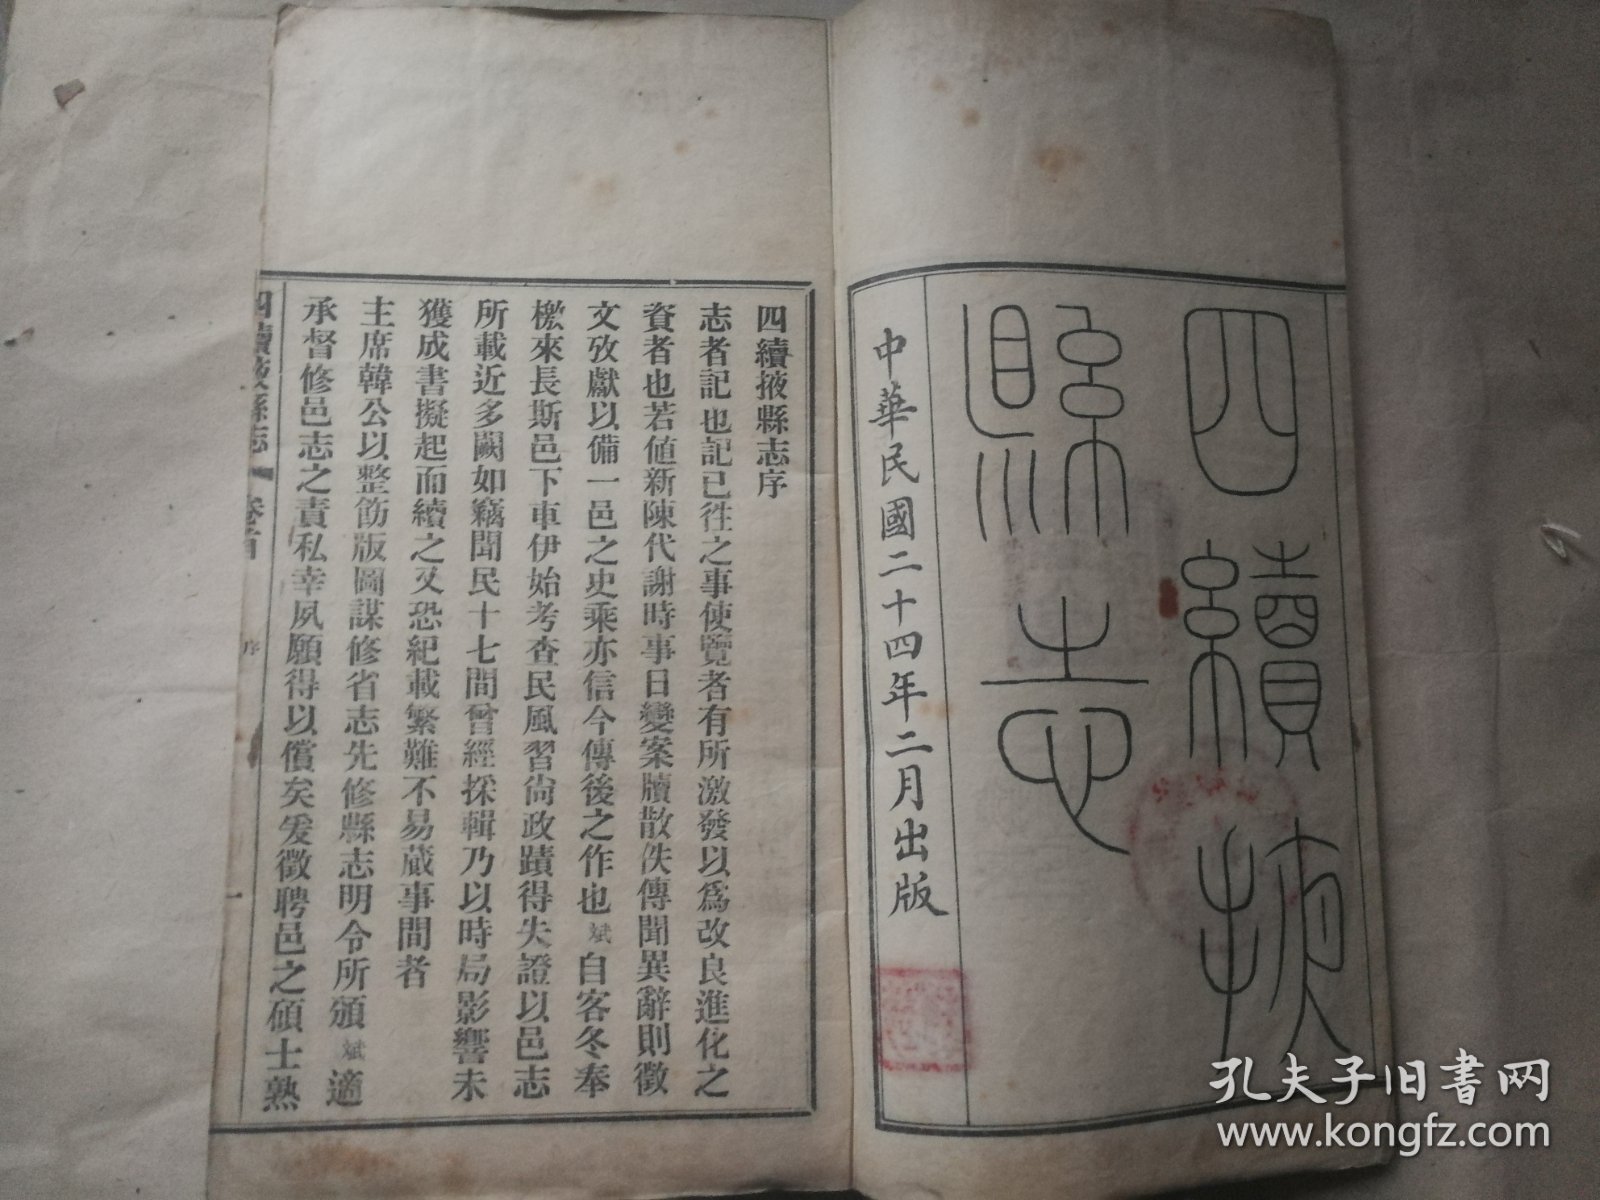 四續掖
縣志
中華民國二十四年二月出版
四續掖縣志序
志者記也記已往之事使覽者有所激發以爲改良進化之
資者也若值新陳代謝時事日變案牘散佚傳聞異辭則徵
文攷獻以備一邑之史乘亦信今傳後之作也斌自客冬奉
檄來長斯邑下車伊始考查民風習尙政蹟得失證以邑志
所載近多闕如竊聞民十七間曾經採輯乃以時局影響未
獲成書擬起而續之又恐紀載繁難不易蕆事間者
主席韓公以整飭版圖謀修省志先修縣志明令所頒斌適
承督修邑志之責私幸夙願得以償矣爰徵聘邑之碩士熟
四續掖縣志 卷首 序 一
孔夫子旧书网
www.kongfz.com